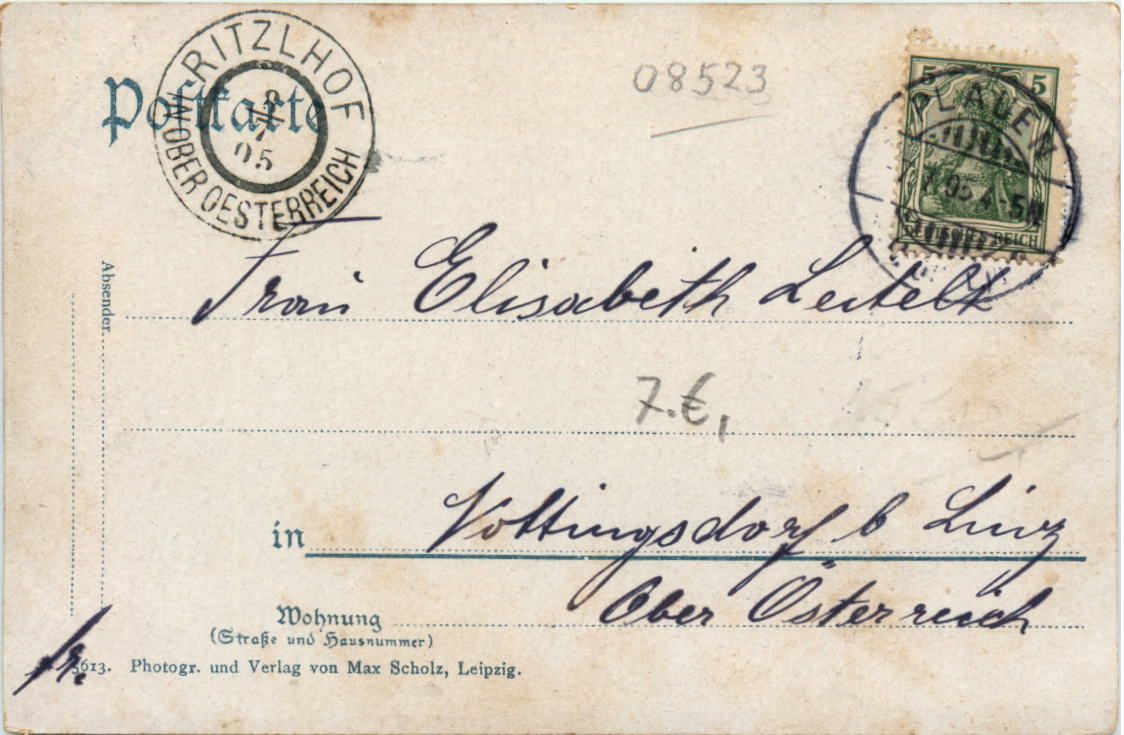 RITZLHOF
OBER OESTERREICH
8
7
05
Postkarte
08523
5 5
PLAUEN
REICH
Absender
Frau Elisabeth Leitelt
7.€,
in Nottingsdorf b Linz
Ober Österreich
Wohnung
(Straße und Hausnummer)
fr.
5613. Photogr. und Verlag von Max Scholz, Leipzig.